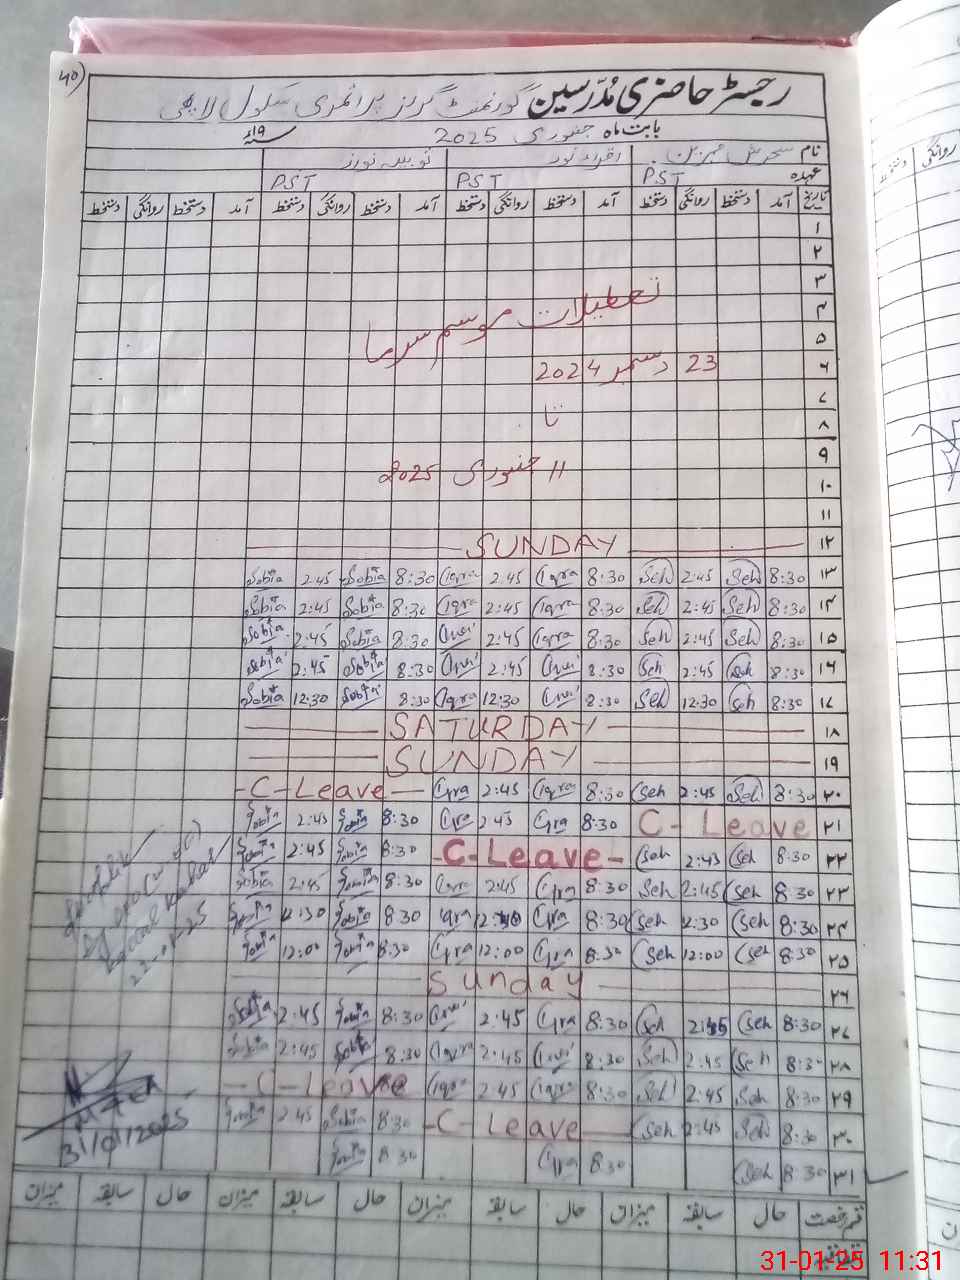 40)
رجسٹر حاضری مُدرّسین گورنمنٹ گرلز پرائمری سکول لاچی
بابت ماہ جنوری 2025 ۱۹ء
نام سحرش مہرین اقراء نور ثوبیہ نورز
عہدہ PST PST PST
تاریخ آمد دستخط روانگی دستخط آمد دستخط روانگی دستخط آمد دستخط روانگی دستخط آمد دستخط روانگی دستخط
۱
۲
۳
تعطیلات موسم سرما
۴
۵
۶ 23 دسمبر 2024
۷
تا
۸
۹
11 جنوری 2025
۱۰
۱۱
۱۲ SUNDAY
۱۳ 8:30 Seh 2:45 Seh 8:30 Iqra 2:45 Iqra 8:30 Sobia 2:45 Sobia
۱۴ 8:30 Seh 2:45 Seh 8:30 Iqra 2:45 Iqra 8:30 Sobia 2:45 Sobia
۱۵ 8:30 Seh 2:45 Seh 8:30 Iqra 2:45 8:30 Sobia 2:45 Sobia
۱۶ 8:30 Seh 2:45 Seh 8:30 2:45 8:30 Sobia 2:45 Sobia
۱۷ 8:30 Seh 12:30 Seh 8:30 12:30 Iqra 8:30 Sobia 12:30 Sobia
۱۸ SATURDAY
۱۹ SUNDAY
۲۰ 8:30 Seh 2:45 Seh 8:30 Iqra 2:45 Iqra C-Leave
۲۱ C-Leave 8:30 Iqra 2:45 Iqra 8:30 Sobia 2:45 Sobia
۲۲ 8:30 Seh 2:45 Seh C-Leave 8:30 Sobia 2:45 Sobia
۲۳ 8:30 Seh 2:45 Seh 8:30 Iqra 2:45 Iqra 8:30 Sobia 2:45 Sobia
۲۴ 8:30 Seh 12:30 Seh 8:30 Iqra Iqra 8:30 Sobia 12:30 Sobia
۲۵ 8:30 Seh 12:00 Seh 8:30 Iqra 12:00 Iqra 8:30 Sobia 12:00 Sobia
22-01-25
۲۶ Sunday
۲۷ 8:30 Seh 2:45 Seh 8:30 Iqra 2:45 8:30 Sobia 2:45 Sobia
۲۸ 8:30 Seh 2:45 Seh 8:30 2:45 Iqra 8:30 Sobia 2:45 Sobia
۲۹ 8:30 Seh 2:45 Seh 8:30 Iqra 2:45 Iqra C-Leave
۳۰ 8:30 Seh 2:45 Seh C-Leave 8:30 Sobia 2:45 Sobia
31/01/2025
۳۱ 8:30 Seh 8:30 Iqra 8:30 Sobia
قسم رخصت حال سابقہ میزان حال سابقہ میزان حال سابقہ میزان حال سابقہ میزان
31-01-25 11:31
روانگی دستخط